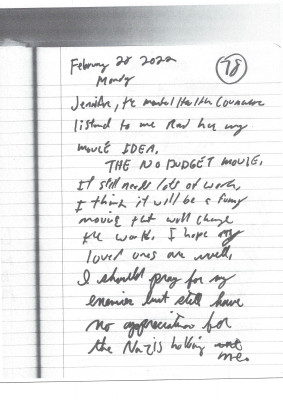 February 28 2022
78
Monday
Jennifer, the mental Health Counselor
listened to me Read her my
movie IDEA.
THE NO BUDGET MOVIE.
It still needs lots of work,
I think it will be a funny
movie that will change
the world. I hope my
loved ones are well,
I should pray for my
enemies but still have
no appreciation for
the Nazis holding
me.